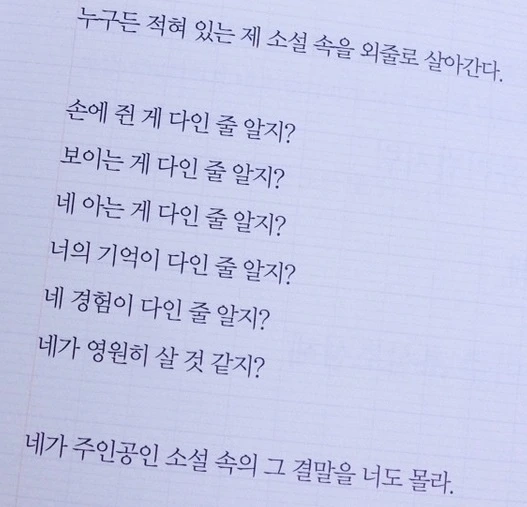 누구든 적혀 있는 제 소설 속을 외줄로 살아간다.
손에 쥔 게 다인 줄 알지?
보이는 게 다인 줄 알지?
네 아는 게 다인 줄 알지?
너의 기억이 다인 줄 알지?
네 경험이 다인 줄 알지?
네가 영원히 살 것 같지?
네가 주인공인 소설 속의 그 결말을 너도 몰라.